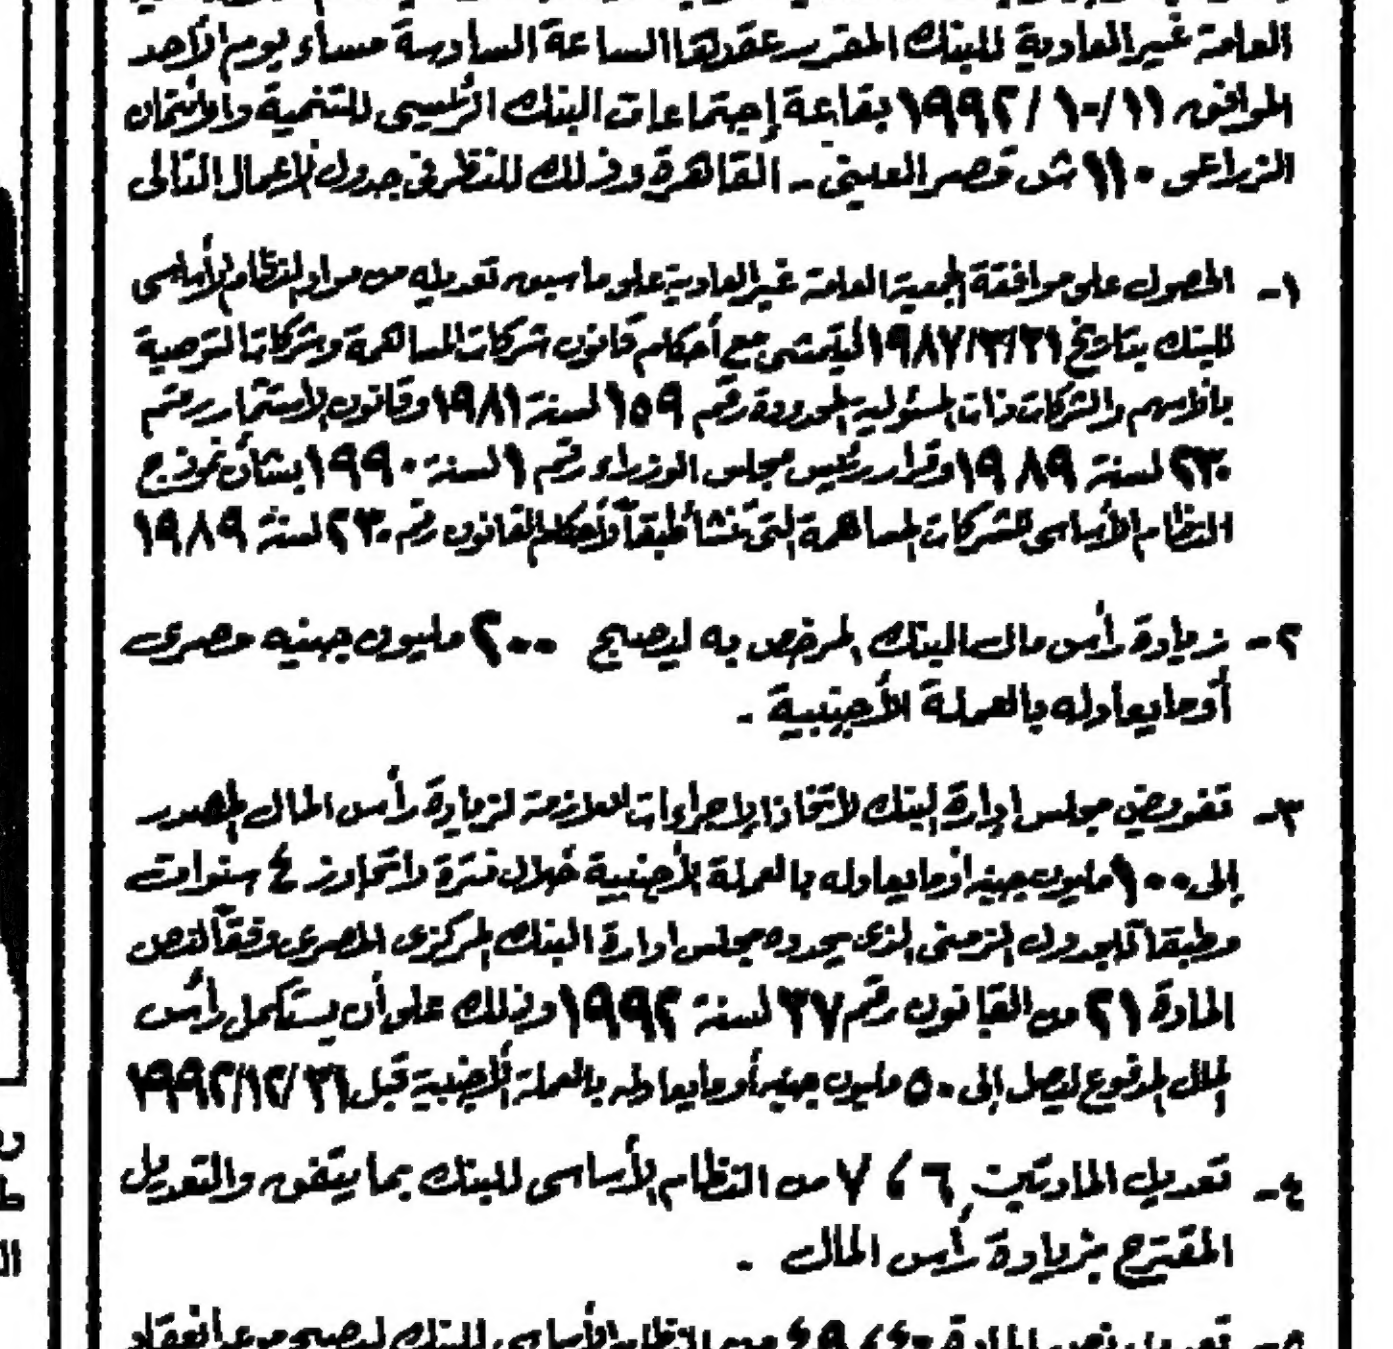 العامة غير العادية للبنك المقرر عقدها الساعة السادسة مساء يوم الأحد
الموافق ١١/١٠/١٩٩٢ بقاعة إجتماعات البنك الرئيسى للتنمية والائتمان
الزراعى ١١٠ ش قصر العينى - القاهرة وذلك للنظر فى جدول الأعمال التالى
١- الحصول على موافقة الجمعية العامة غير العادية على ما سبق تعديله من مواد النظام الأساسى
للبنك بتاريخ ١٩٨٧/٣/٣١ ليتمشى مع أحكام قانون شركات المساهمة وشركات التوصية
بالأسهم والشركات ذات المسئولية المحدودة رقم ١٥٩ لسنة ١٩٨١ وقانون الاستثمار رقم
٢٣٠ لسنة ١٩٨٩ وقرار رئيس مجلس الوزراء رقم ١ لسنة ١٩٩٠ بشأن نموذج
النظام الأساسى لشركات المساهمة التى تنشأ طبقاً لأحكام القانون رقم ٢٣٠ لسنة ١٩٨٩
٢- زيادة رأس مال البنك المرخص به ليصبح ٢٠٠ مليون جنيه مصرى
أو ما يعادله بالعملة الأجنبية -
٣- تفويض مجلس إدارة البنك لاتخاذ الإجراءات اللازمة لزيادة رأس المال المصدر
إلى ١٠٠ مليون جنيه أو ما يعادله بالعملة الأجنبية خلال فترة لا تتجاوز ٤ سنوات
وطبقاً للجدول الزمنى الذى يحدده مجلس ادارة البنك المركزى المصرى وفقاً لنص
المادة ٢١ من القانون رقم ٣٧ لسنة ١٩٩٢ وذلك على أن يستكمل رأس
المال المدفوع ليصل إلى ٥٠ مليون جنيه أو ما يعادله بالعملة الأجنبية قبل ١٩٩٢/١٢/٣١
٤- تعديل المادتين ٦ ، ٧ من النظام الأساسى للبنك بما يتفق والتعديل
المقترح بزيادة رأس المال -